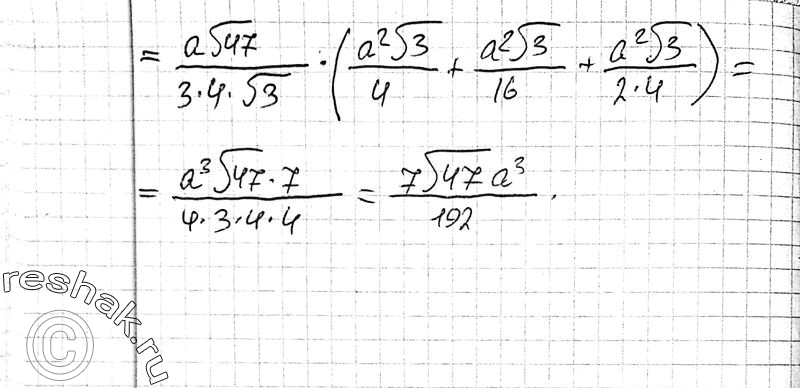 = a√47 / 3·4·√3 · ( a²√3 / 4 + a²√3 / 16 + a²√3 / 2·4 ) =
= a³√47·7 / 4·3·4·4 = 7√47 a³ / 192 .
reshak.ru
©